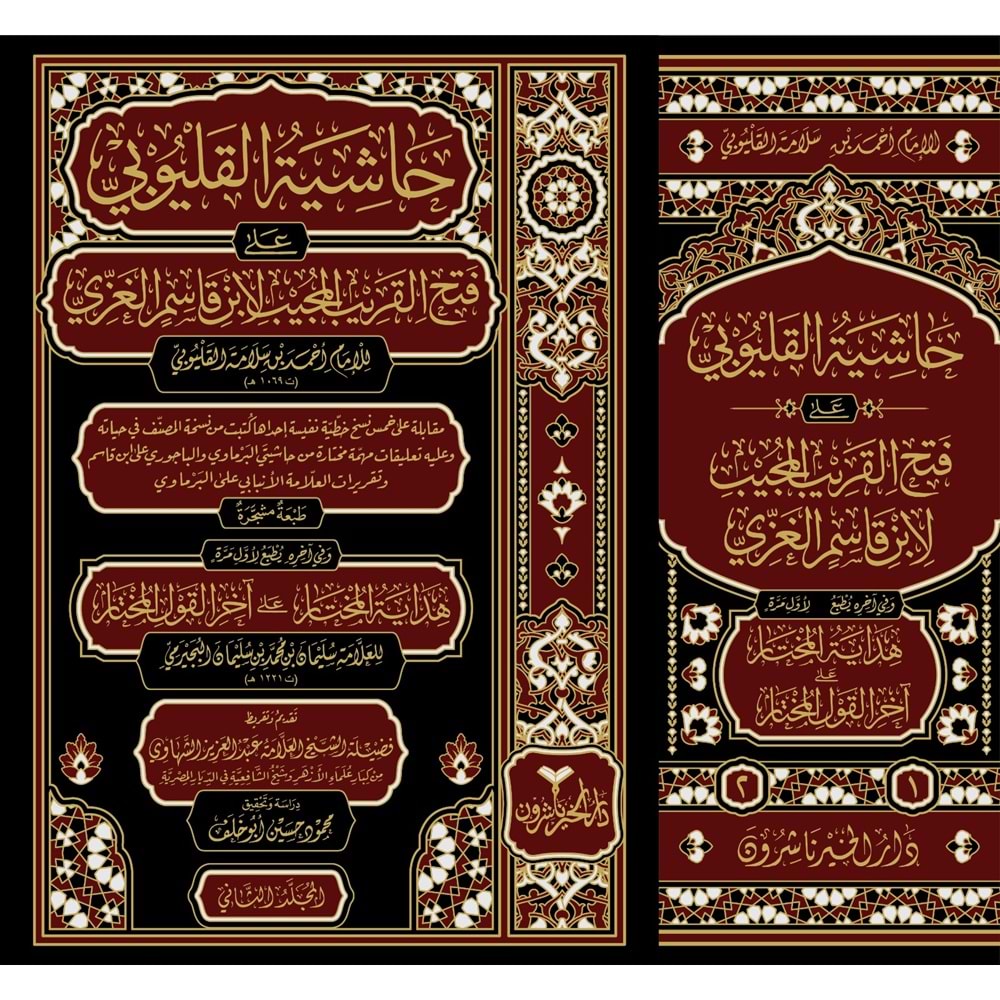 حَاشِيَةُ القَلْيُوبِيِّ
عَلَى
فَتْحِ القَرِيبِ المُجِيبِ لِابْنِ قَاسِمٍ الغَزِّيِّ
لِلْإِمَامِ أَحْمَدَ بْنِ سَلَامَةَ القَلْيُوبِيِّ
(ت ١٠٦٩ هـ)
مقابلة على خمس نسخ خطيّة نفيسة إحداها كُتبت من نسخة المصنّف في حياته
وعليه تعليقات مهمّة مختارة من حاشيتي البَرماوي والباجوري على ابن قاسم
وتقريرات العلامة الأنبابي على البَرماوي
طَبْعَةٌ مشجَّرَةٌ
وَفِي آخِرِهِ يُطْبَعُ لِأَوَّلِ مَرَّة
هِدَايَةُ المُخْتَارِ عَلَى آخِرِ القَوْلِ المُخْتَارِ
لِلعَلَّامَةِ سُلَيْمَانَ بْنِ مُحَمَّدِ بْنِ سُلَيْمَانَ البُجَيْرَمِيِّ
(ت ١٢٢١ هـ)
تَقْدِيمُ وَتَقْرِيظ
فَضِيلَةِ الشَّيْخِ العَلَّامَةِ عَبْدِ العَزِيزِ الشَّهَاوِي
مِنْ كِبَارِ عُلَمَاءِ الأَزْهَرِ وَشَيْخِ الشَّافِعِيَّةِ فِي الدِّيَارِ المِصْرِيَّةِ
دِرَاسَة وَتَحْقِيق
محمُود حسَين أبُو خلَف
المُجَلَّدُ الثَّانِي
دَارُ الخَيْرِ نَاشِرُون
لِلإِمَامِ أَحْمَدَ بْنِ سَلَامَةَ القَلْيُوبِيِّ
حَاشِيَةُ القَلْيُوبِيِّ
عَلَى
فَتْحِ القَرِيبِ المُجِيبِ
لِابْنِ قَاسِمٍ الغَزِّيِّ
وَفِي آخِرِهِ يُطْبَعُ لِأَوَّلِ مَرَّة
هِدَايَةُ المُخْتَارِ
عَلَى
آخِرِ القَوْلِ المُخْتَارِ
١ ٢
دَارُ الخَيْرِ نَاشِرُونَ